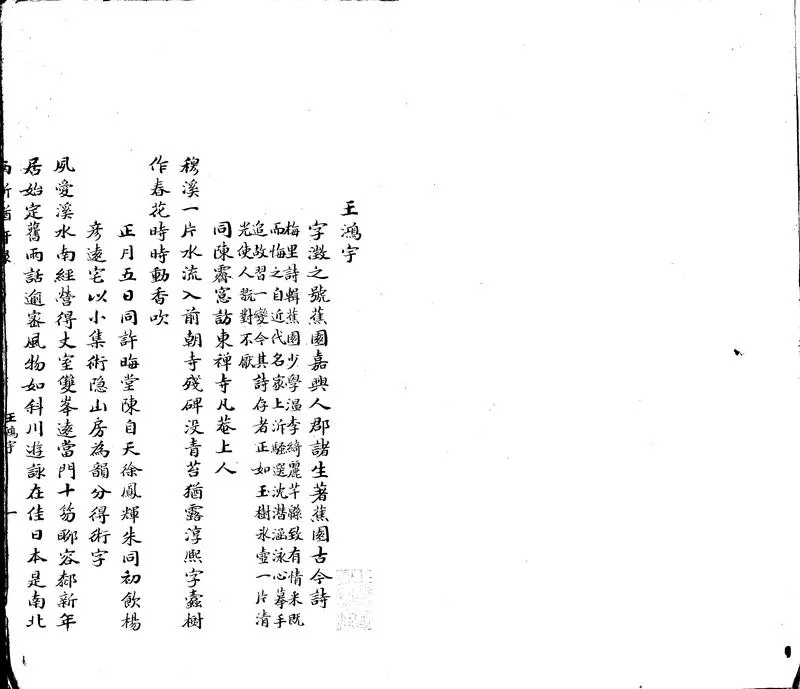 王鴻宇
字澂之號蕉園嘉興人郡諸生著蕉園古今詩
梅里詩輯蕉園少學溫李綺麗芊緜致有情采既
而悔之自近代名家上泝騷選沈潛涵泳心摹手
追故習一變今其詩存者正如玉樹氷壺一片清
光使人翫對不厭
同陳齋窓訪東禪寺凡菴上人
穆溪一片水流入前朝寺殘碑没青苔猶露淳熙字蠧樹
作春花時時動香吹
正月五日同許晦堂陳自天徐鳳輝朱同初飲楊
彦遠宅以小集術隐山房為韻分得術字
夙愛溪水南經營得丈室雙峯遠當門十笏聊容膝新年
居始定舊雨話逾密風物如斜川遊詠在佳日本是南北
王鴻宇
一